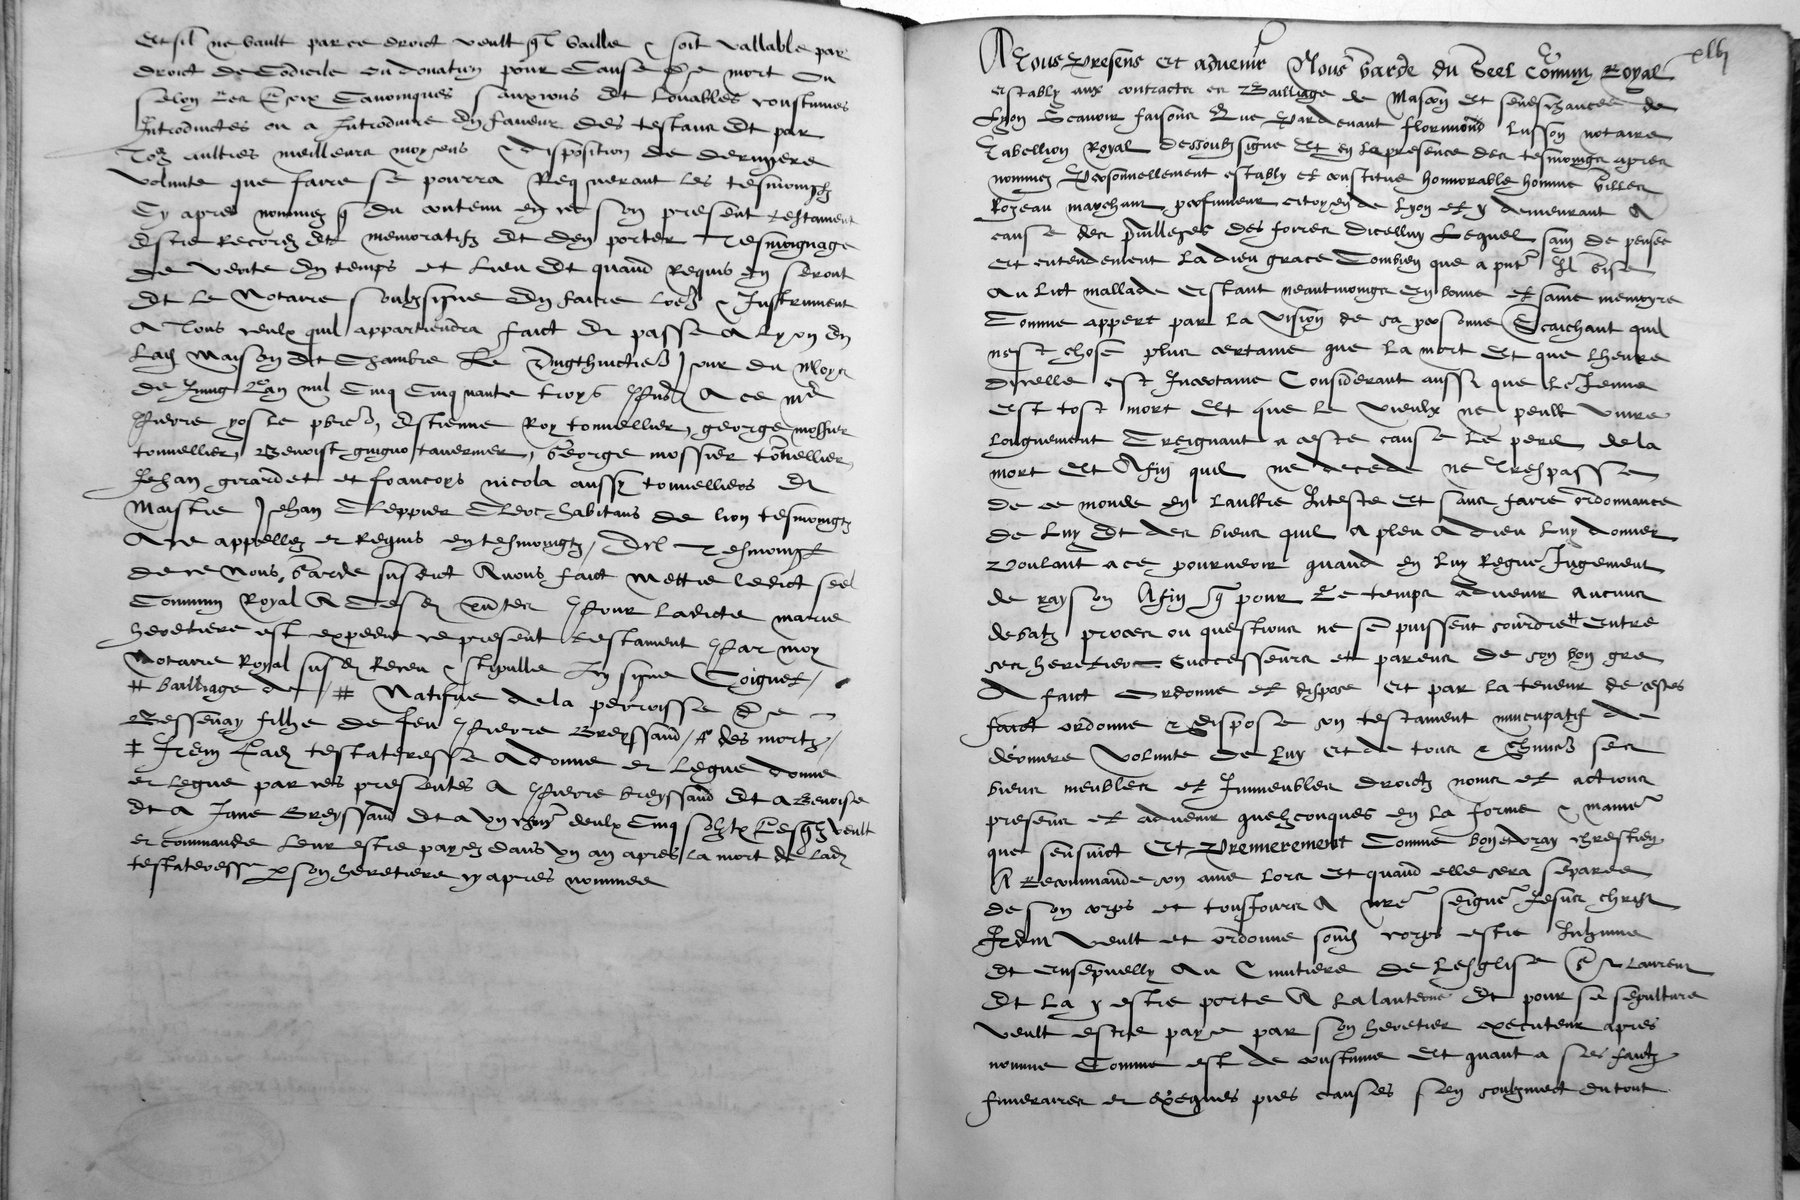 Et sil ne vault par ce droict veult ql vaille & soit vallable par
droict de Codicile ou donation pour Cause de mort Ou
selon les Loix Canonicques sanxions Et louables coustumes
Introductes ou a Introduire En faveur des testans Et par
Tous aultres meilleurs moyens & disposition de derniere
volunte que faire se pourra Requerant les tesmoingz
Cy apres nommez q du contenu en ce son present testament
Estre Recordz Et memoratifz Et den porter Tesmoignage
de verite En temps et Lieu Et quand Requis En seront
Et Le Notaire soubzsigne En faire Lectre & Instrument
A Tous ceulx quil appartiendra faict Et passe A Lyon En
Lad Maison Et Chambre Le Vingthuictiesme Jour du Moys
de Jung Lan mil Cinq Cinquante troys Pns A ce mre
Pierre yosle pbre, Estienne Roy tonnellier, george mossier
tonnellier, Benoist guiguo tavernier, George mossier tonnellier,
Jehan girardet et francoys nicola aussy tonnelliers Et
Maistre Jehan Treppier Clerc habitans de lion tesmoingtz
A ce appellez et Requis en tesmoingtz / Et Tesmoingt
de ce Nous Garde susdict Avons faict Mettre ledict seel
Commun Royal A Cesd pntes Pour ladicte marie
heretiere est expedie ce present testament Par moy
Notaire Royal susd Receu & stipulle Ainsi signe Coignet /
# bailliage de / # Natifve de la perroisse de
Bessenay fille de feu Pierre Breyssand / # des mortz /
‡ Item Lad testateresse A donne et Legue donne
et Legue par ces presentes A Pierre breyssand Et a Benoise
Et A Jane Breyssand Et a Un chun deulx Cinq solz tz Lesqlz veult
et commande Leur estre payez dans Un an apres la mort de Lad
testateresse p son heretiere cy apres nommee
xlvj
A Tous Presens et advenir Nous Garde du Seel Commun Royal
estably aux contractz es Bailliage de Mascon Et seneschaucee de
Lyon Scavoir faisons Que Pardevant florimond lusson notaire
Tabellion Royal dessoubz signe Et En la presence des tesmoings apres
nommez Personnellement estably et constitue honnorable homme Gilles
Rozeau marchant parfumeur citoyen de Lyon et y demeurant A
cause des privilleges des foires dicelluy Lequel sain de pensee
et entendement La dieu grace Combien que a pnt Il Gise
Au Lict mallade Estant neantmoings En bonne et saine memoyre
Comme appert par la vision de sa personne Scaichant quil
nest chose plus certaine que La mort Et que lheure
dicelle est Incertaine Considerant aussi que Le Jeune
est tost mort Et que le vieulx ne peult vivre
longuement Creignant a ceste cause le peril de la
mort Et Affin quil ne decede ne Trespasse
de ce monde en laultre Inteste Et sans faire ordonnance
de luy Et des biens quil a pleu A dieu luy donner
Voulant a ce pourveoir quand en luy Regne Jugement
de rayson Affin q pour Le temps advenir Aucuns
debatz proces ou questions ne se puissent sourdre # entre
ses heretiers Successeurs et parens de son bon gre
A faict Ordonne et dispose Et par la teneur de cestes
faict ordonne & dispose son testament nuncupatif de
derniere Volunte de luy et de tous & Chuns ses
biens meubles et Immeubles droictz noms et actions
presens et advenir quelzconques en la forme & maniere
que sensuict Et Premierement Comme bon et vray chrestien
A Recommande son ame lors Et quand elle sera separee
de son corps et tousjours A nre seigneur Jesus christ
Item veult et ordonne sond corps estre Inhume
Et Ensepvelly Au Cimitiere de Lesglise St Laurens
Et La y estre porte A La lanterne Et pour sa sepulture
veult estre paye par son heretier executeur apres
nomme Comme est de coustume Et quant a ses faictz
funeraires et exeques pies causes sen soubzmect du tout